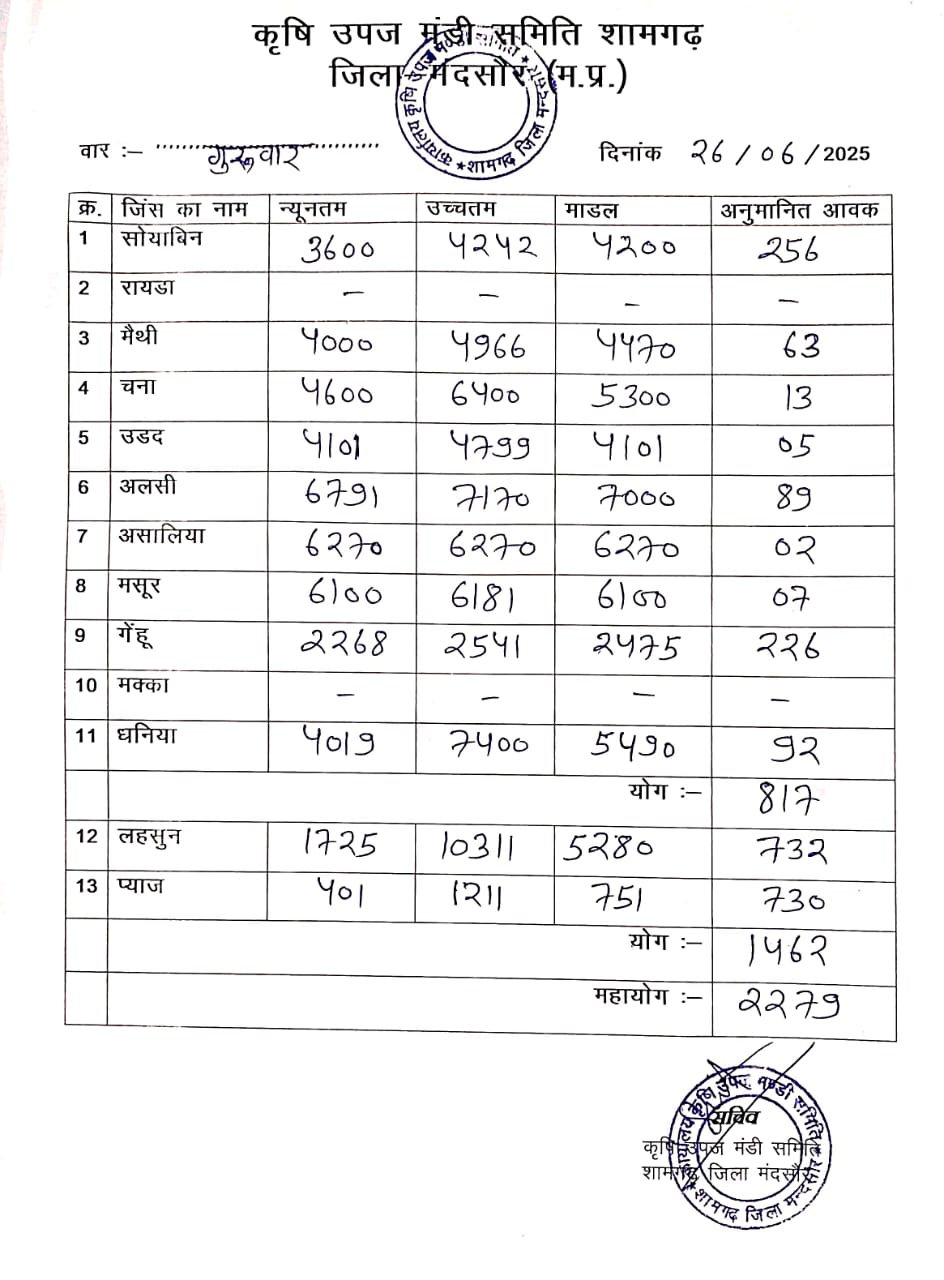 कृषि उपज मंडी समिति शामगढ़
जिला मंदसौर (म.प्र.)
कार्यालय कृषि उपज मण्डी समिति * शामगढ़ जिला मन्दसौर *
वार :– गुरूवार दिनांक 26/06/2025
क्र. जिंस का नाम न्यूनतम उच्चतम माडल अनुमानित आवक
1 सोयाबिन 3600 4242 4200 256
2 रायडा – – – –
3 मैथी 4000 4966 4470 63
4 चना 4600 6400 5300 13
5 उडद 4101 4799 4101 05
6 अलसी 6791 7170 7000 89
7 असालिया 6270 6270 6270 02
8 मसूर 6100 6181 6100 07
9 गेंहू 2268 2541 2475 226
10 मक्का – – – –
11 धनिया 4019 7400 5490 92
योग :– 817
12 लहसुन 1725 10311 5280 732
13 प्याज 401 1211 751 730
योग :– 1462
महायोग :– 2279
सचिव
कृषि उपज मंडी समिति
शामगढ़ जिला मंदसौर
कार्यालय कृषि उपज मण्डी समिति * शामगढ़ जिला मन्दसौर *